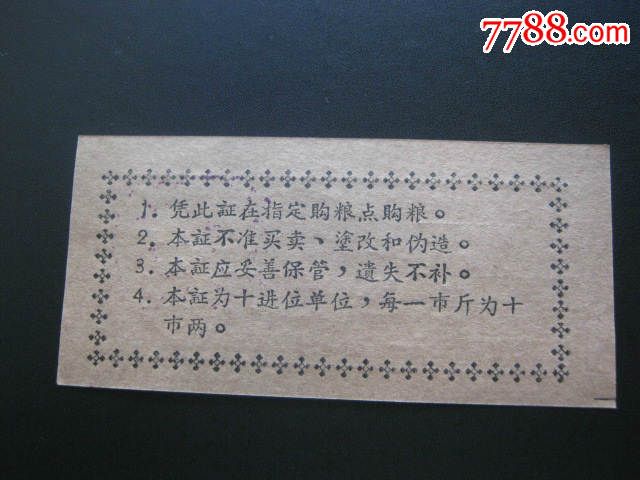 7788.com
1. 凭此証在指定购粮点购粮。
2. 本証不准买卖、塗改和伪造。
3. 本証应妥善保管，遺失不补。
4. 本証为十进位单位，每一市斤为十
市两。